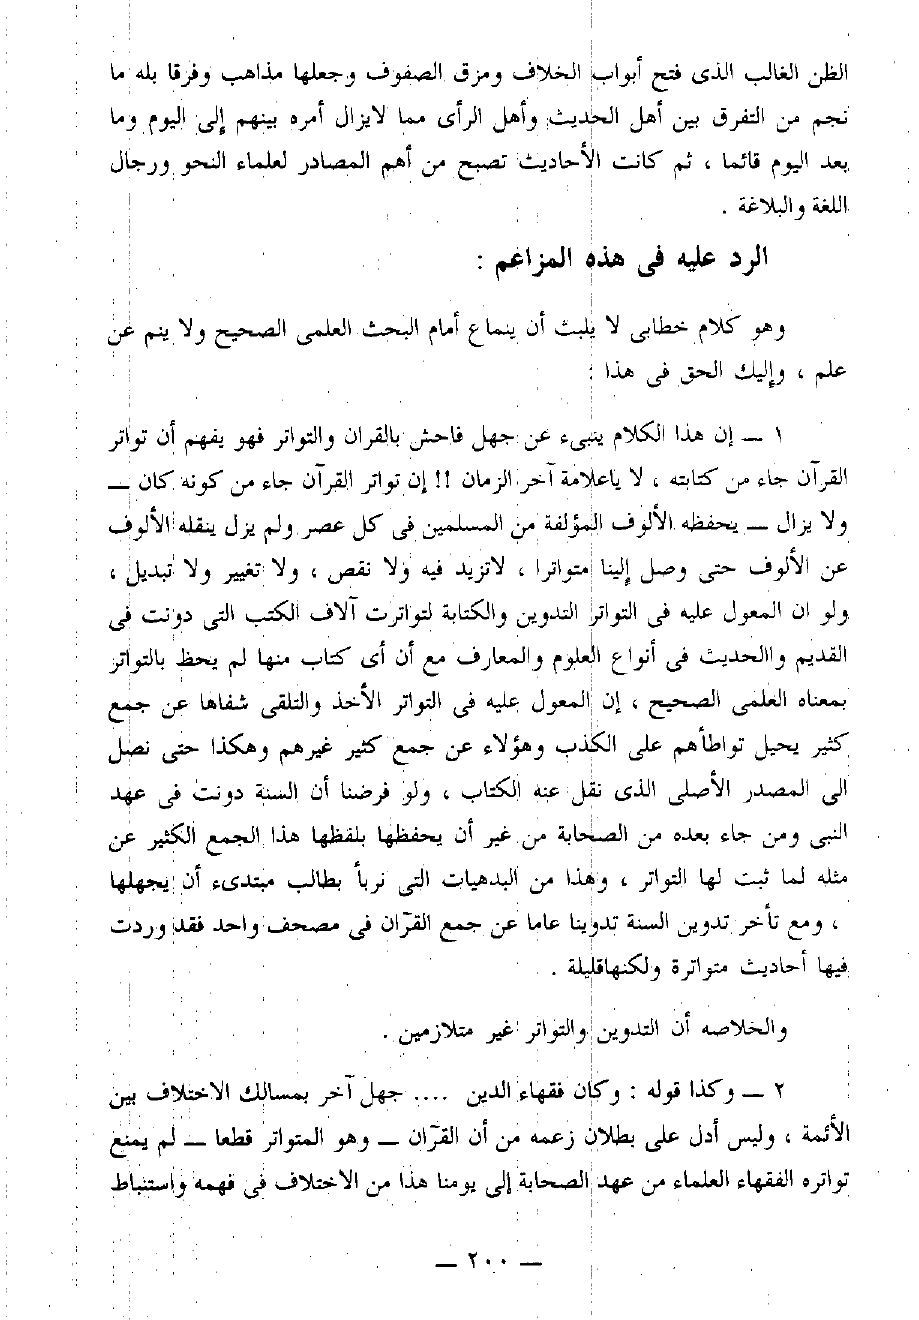 الظن الغالب الذى فتح أبواب الخلاف ومزق الصفوف وجعلها مذاهب وفرقا بله ما
نجم من التفرق بين أهل الحديث وأهل الرأى مما لايزال أمره بينهم إلى اليوم وما
بعد اليوم قائما ، ثم كانت الأحاديث تصبح من أهم المصادر لعلماء النحو ورجال
اللغة والبلاغة .
الرد عليه فى هذه المزاعم :
وهو كلام خطابى لا يلبث أن ينماع أمام البحث العلمى الصحيح ولا ينم عن
علم ، وإليك الحق فى هذا :
١ ــ إن هذا الكلام ينبىء عن جهل فاحش بالقران والتواتر فهو يفهم أن تواتر
القرآن جاء من كتابته ، لا ياعلامة آخر الزمان !! إن تواتر القرآن جاء من كونه كان ــ
ولا يزال ــ يحفظه الألوف المؤلفة من المسلمين فى كل عصر ولم يزل ينقله الألوف
عن الألوف حتى وصل إلينا متواترا ، لاتزيد فيه ولا نقص ، ولا تغيير ولا تبديل ،
ولو ان المعول عليه فى التواتر التدوين والكتابة لتواترت آلاف الكتب التى دونت فى
القديم واالحديث فى أنواع العلوم والمعارف مع أن أى كتاب منها لم يحظ بالتواتر
بمعناه العلمى الصحيح ، إن المعول عليه فى التواتر الأخذ والتلقى شفاها عن جمع
كثير يحيل تواطأهم على الكذب وهؤلاء عن جمع كثير غيرهم وهكذا حتى نصل
الى المصدر الأصلى الذى نقل عنه الكتاب ، ولو فرضنا أن السنة دونت فى عهد
النبى ومن جاء بعده من الصحابة من غير أن يحفظها بلفظها هذا الجمع الكثير عن
مثله لما ثبت لها التواتر ، وهذا من البدهيات التى نربأ بطالب مبتدىء أن يجهلها
، ومع تأخر تدوين السنة تدوينا عاما عن جمع القرآن فى مصحف واحد فقد وردت
فيها أحاديث متواترة ولكنهاقليلة .
والخلاصه أن التدوين والتواتر غير متلازمين .
٢ ــ وكذا قوله : وكان فقهاء الدين .... جهل آخر بمسالك الاختلاف بين
الأئمة ، وليس أدل على بطلان زعمه من أن القرآن ــ وهو المتواتر قطعا ــ لم يمنع
تواتره الفقهاء العلماء من عهد الصحابة إلى يومنا هذا من الاختلاف فى فهمه واستنباط
ــ ٢٠٠ ــ